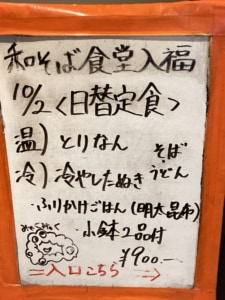 和そば食堂入福
10/2<日替定食>
温)とりなん
冷)冷やしたぬき
そば
うどん
ふりかけごはん(明太昆布)
小鉢2品付
¥900.-
＝入口こちら⇒